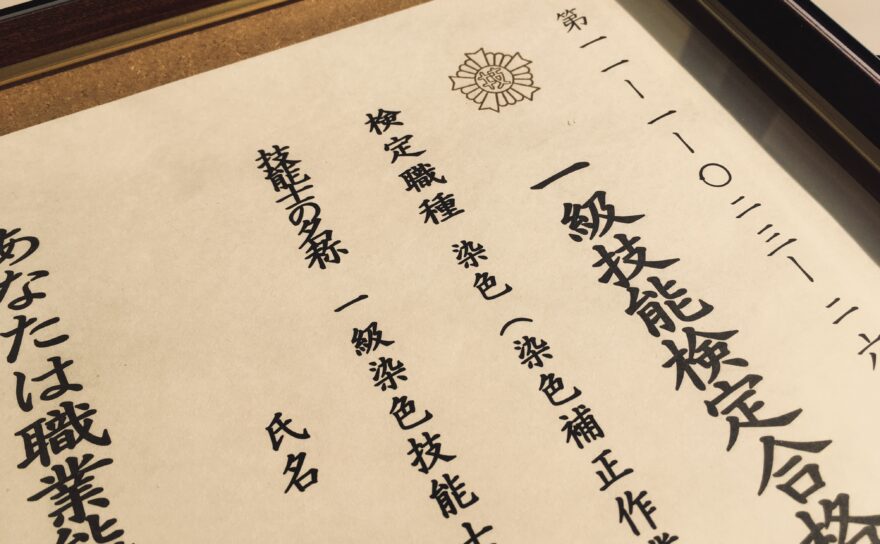 第一一-一-〇二三-二六
技
一級技能検定合格
検定職種　染色（染色補正作業
技能士の名称　一級染色技能士
氏名
あなたは職業能